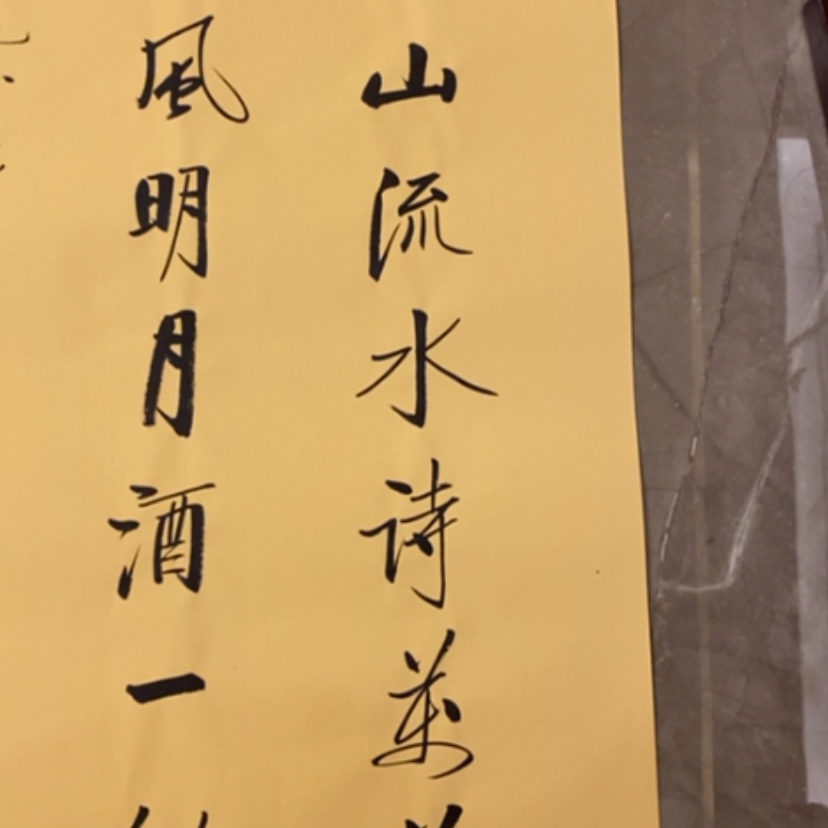 山流水诗萬
風明月酒一